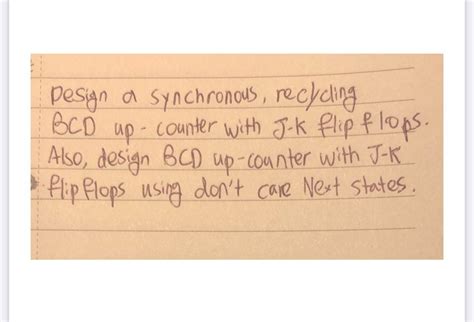 Design a synchronous, recycling
BCD up-counter with J-K flip flops.
Also, design BCD up-counter with J-K
flipflops using don't care Next states.